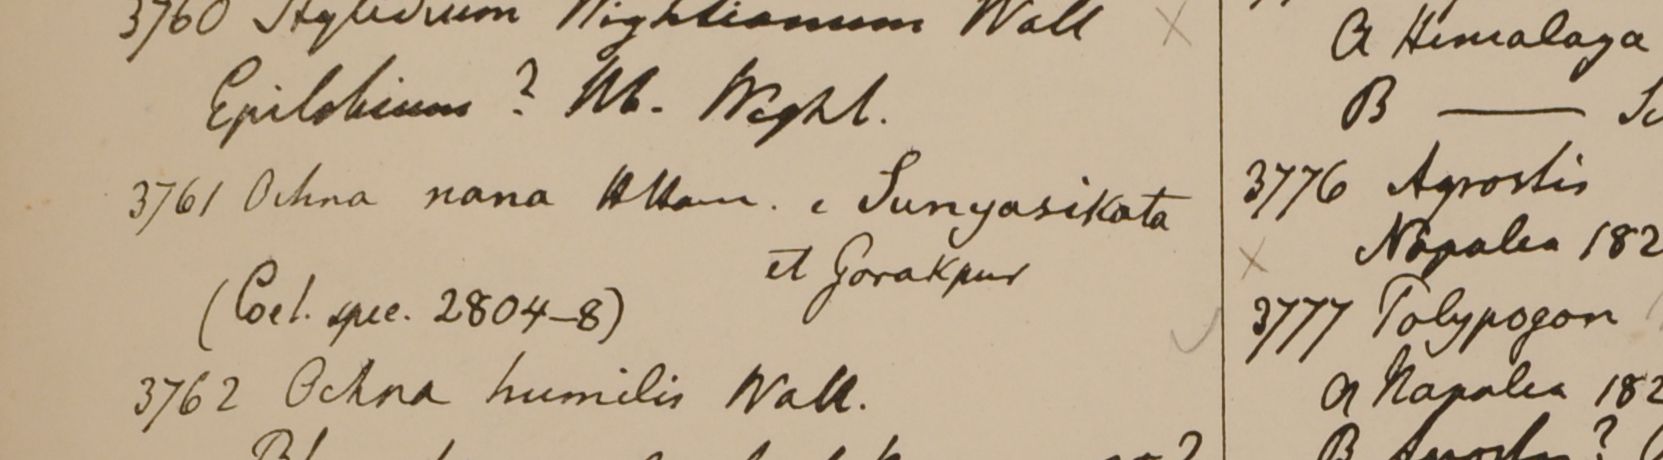 3760 Stylidium Wightianum Wall
Epilobium ? Hb. Wight.
3761 Ochna nana Ham. e Sunyasikata
et Gorakpur
(Coel. spec. 2804-8)
3762 Ochna humilis Wall.
A Himalaya
B ——
3776 Agrostis
Napalia 182
3777 Polypogon
A Napalia 182
B Agrostis ?